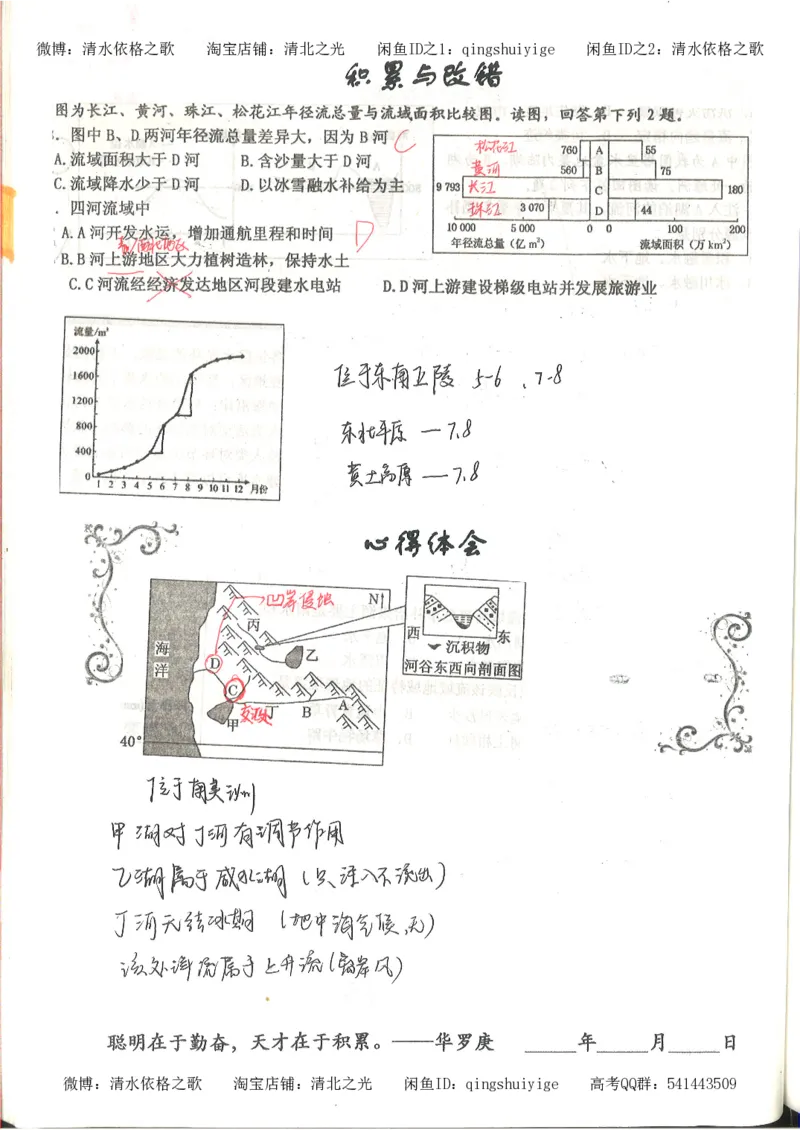 微博：清水依格之歌 淘宝店铺：清北之光 闲鱼ID之1：qingshuiyige 闲鱼ID之2：清水依格之歌
积累与改错
图为长江、黄河、珠江、松花江年径流总量与流域面积比较图。读图，回答第下列2题。
．图中B、D两河年径流总量差异大，因为B河 C
A.流域面积大于D河 B.含沙量大于D河
C.流域降水少于D河 D.以冰雪融水补给为主
．四河流域中
A.A河开发水运，增加通航里程和时间 D
B.B河上游地区大力植树造林，保持水土
C.C河流经经济发达地区河段建水电站 D.D河上游建设梯级电站并发展旅游业
松花江 760 A 55
黄河 560 B 75
9 793 长江 C 180
珠江 3 070 D 44
10 000 5 000 0 0 100 200
年径流总量（亿 m³） 流域面积（万 km²）
流量/m³
2000
1600
1200
800
400
0
1 2 3 4 5 6 7 8 9 10 11 12 月份
位于东南丘陵 5-6 、7-8
东北平原 — 7.8
黄土高原 — 7.8
心得体会
凹岸侵蚀
N
丙
海洋
D
乙
C
交汇处
丁
B
A
甲
40°
西 东
沉积物
河谷东西向剖面图
位于南美洲
甲湖对丁河有调节作用
乙湖属于咸水湖（只注入不流出）
丁河无结冰期（地中海气候，无）
该处洋流属于上升流（离岸风）
聪明在于勤奋，天才在于积累。——华罗庚 ____年____月____日
微博：清水依格之歌 淘宝店铺：清北之光 闲鱼ID：qingshuiyige 高考QQ群：541443509